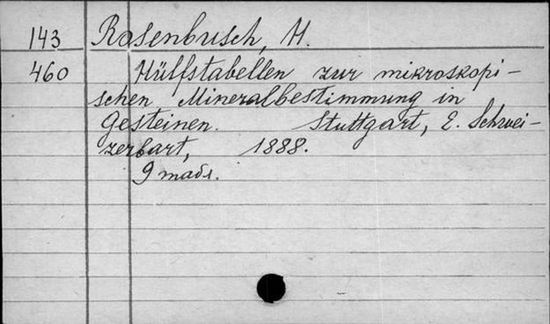 143 Rosenbusch, H.
460 Hülfstabellen zur mikroskopi-
schen Mineralbestimmung in
Gesteinen. Stuttgart, E. Schwei-
zerbart, 1888.
9 mads.